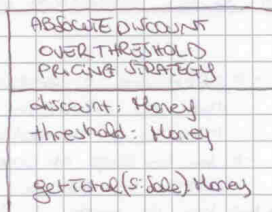 ABSOLUTE DISCOUNT
OVER THRESHOLD
PRICING STRATEGY
discount: Money
threshold: Money
getTotal(s:Sale):Money